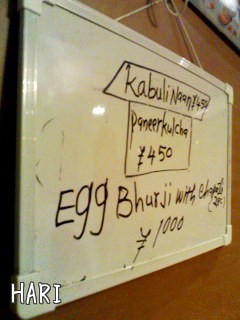 Kabuli Naan ¥450
Paneer kulcha
¥450
Egg Bhurji with chapati
(2Pc)
¥ 1000
HARI